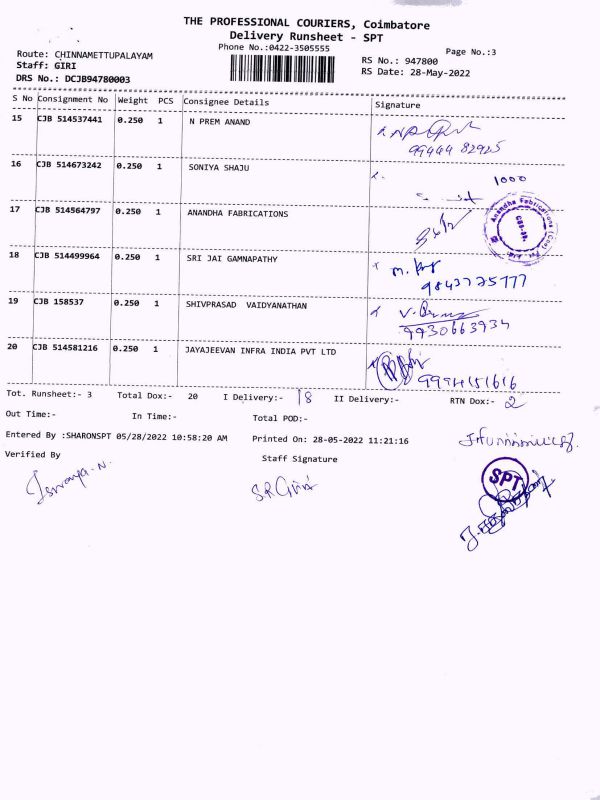 THE PROFESSIONAL COURIERS, Coimbatore
Delivery Runsheet - SPT
Phone No.:0422-3505555
Page No.:3
Route: CHINNAMETTUPALAYAM
Staff: GIRI
DRS No.: DCJB94780003
RS No.: 947800
RS Date: 28-May-2022
S No Consignment No Weight PCS Consignee Details Signature
15 CJB 514537441 0.250 1 N PREM ANAND
99444 82925
16 CJB 514673242 0.250 1 SONIYA SHAJU
1000
17 CJB 514564797 0.250 1 ANANDHA FABRICATIONS
Anandha Fabrications (Cbe) Pvt. Ltd.
18 CJB 514499964 0.250 1 SRI JAI GAMNAPATHY
9843775777
19 CJB 158537 0.250 1 SHIVPRASAD VAIDYANATHAN
9930663934
20 CJB 514581216 0.250 1 JAYAJEEVAN INFRA INDIA PVT LTD
9994151616
Tot. Runsheet:- 3 Total Dox:- 20 I Delivery:- 18 II Delivery:- RTN Dox:- 2
Out Time:- In Time:- Total POD:-
Entered By :SHARONSPT 05/28/2022 10:58:20 AM Printed On: 28-05-2022 11:21:16
Verified By Staff Signature
SPT